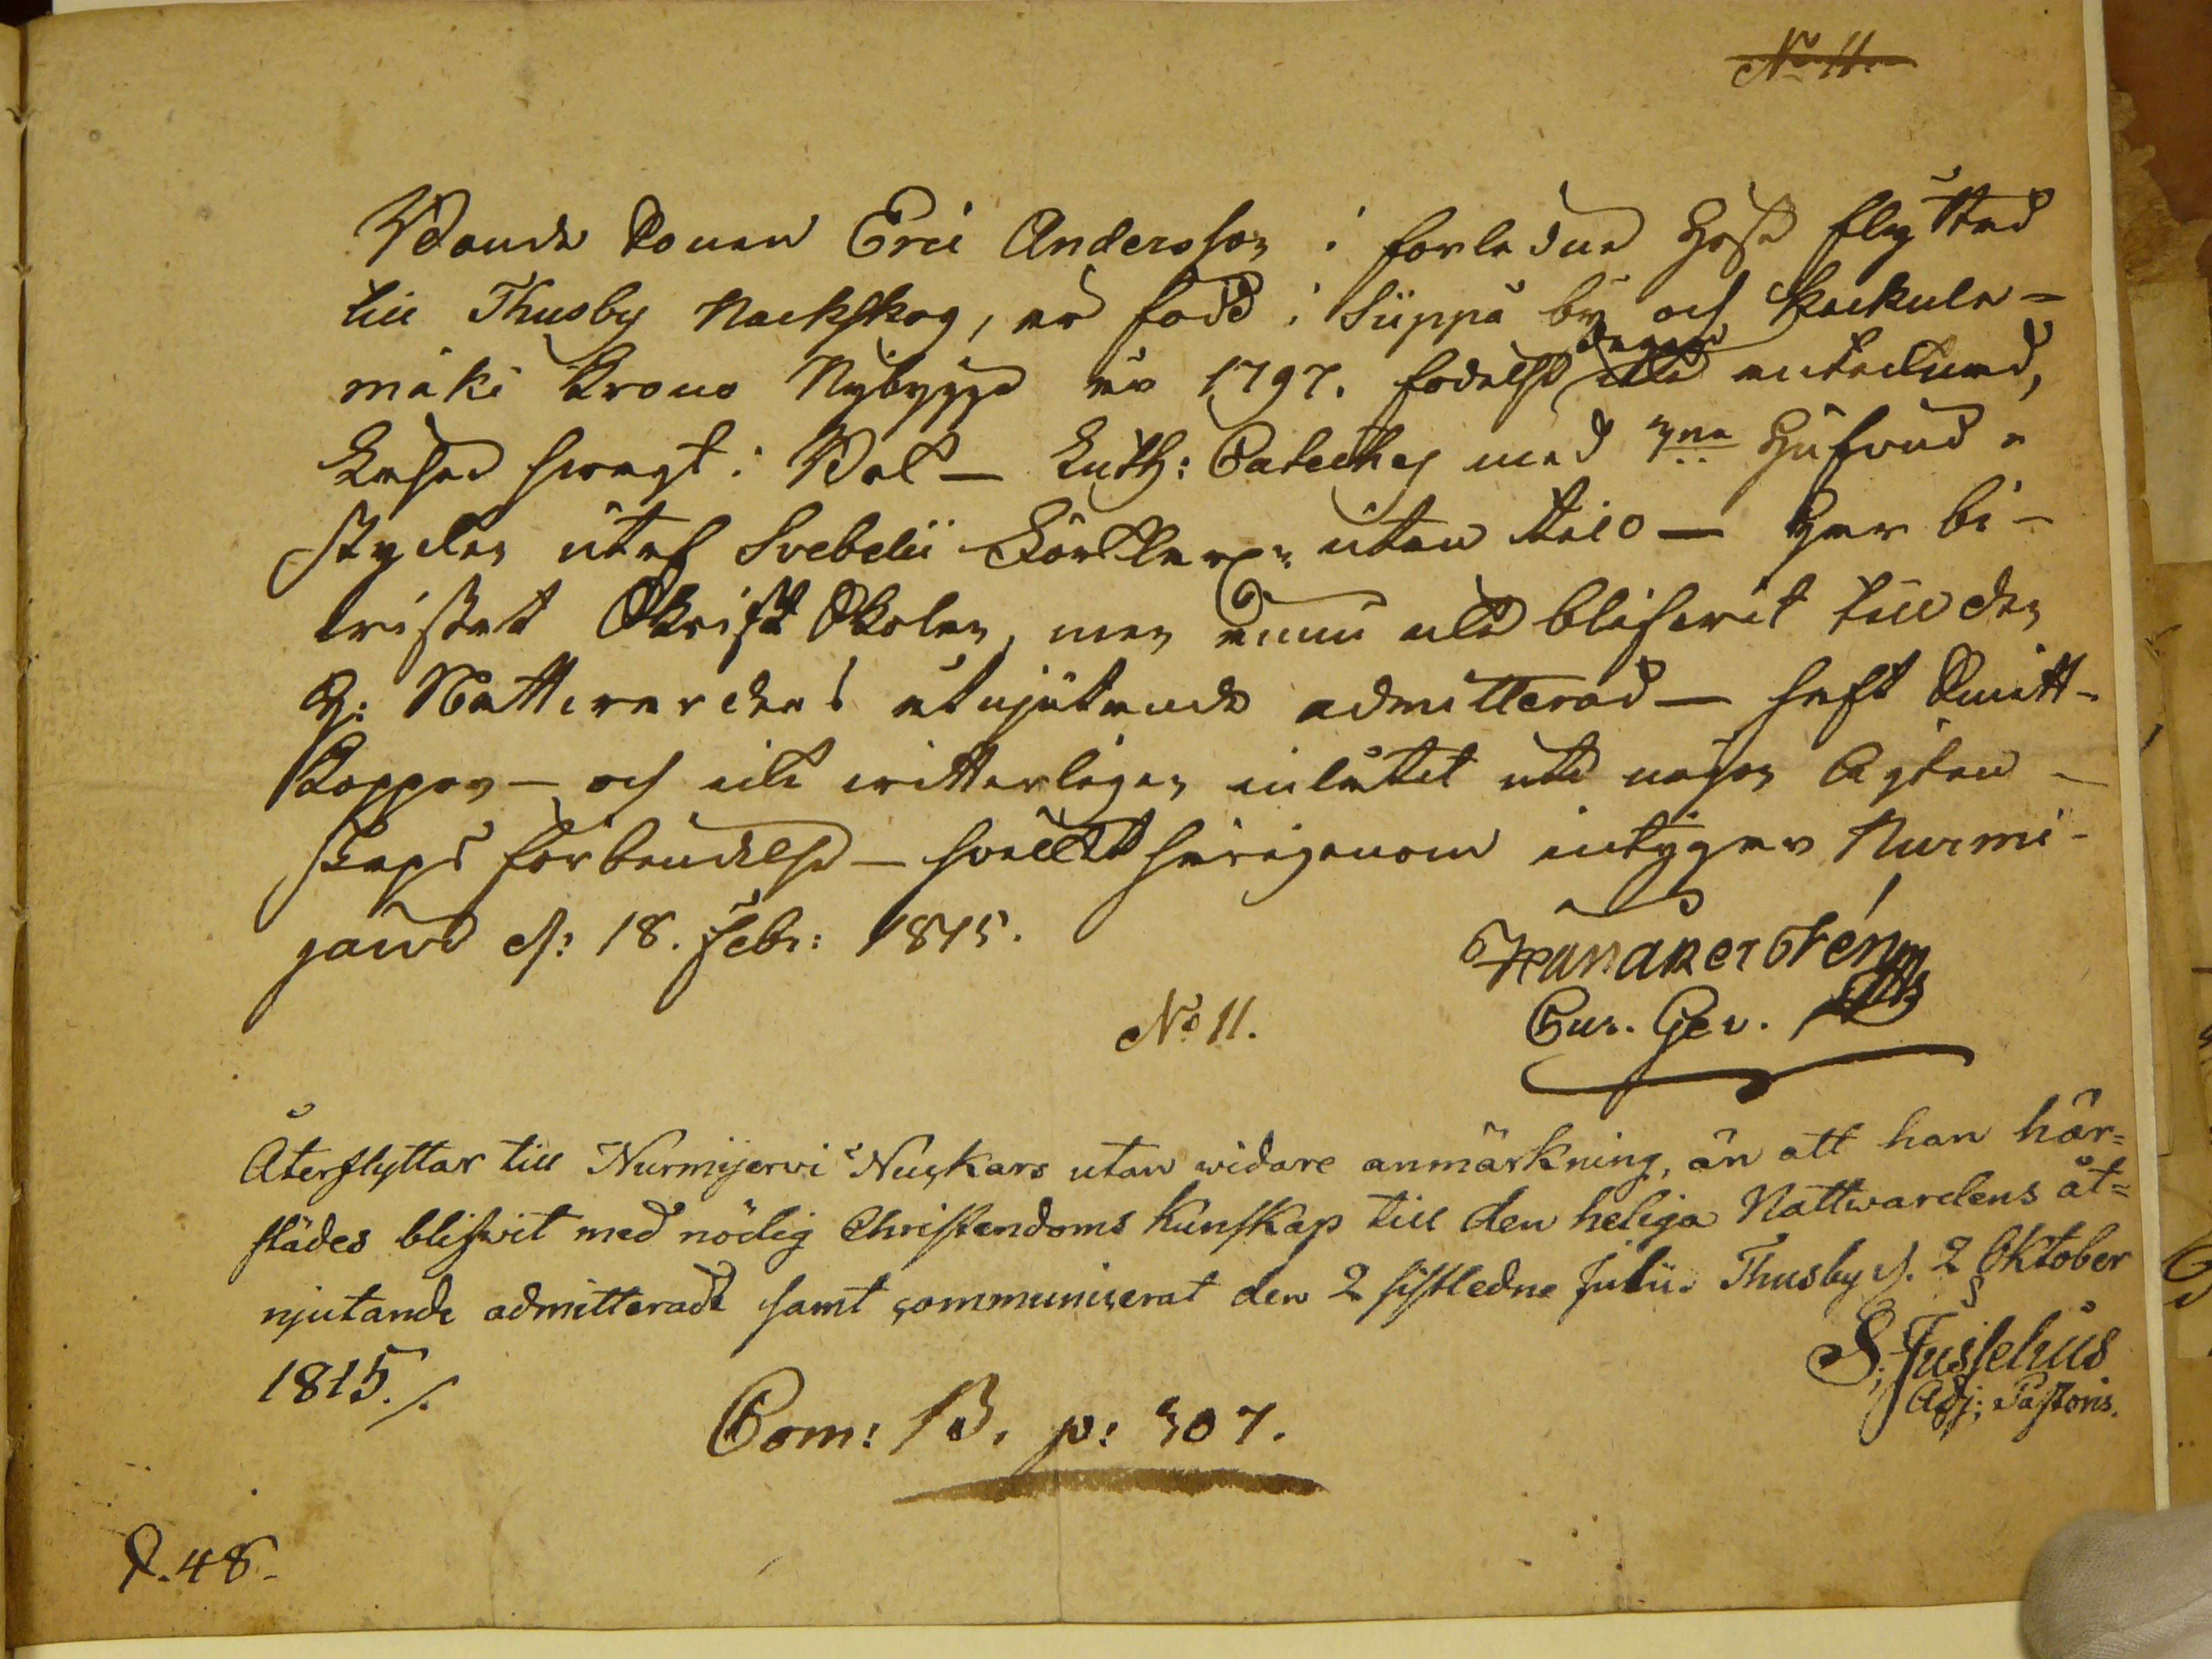 No 11.
Wande Sonen Eric Andersson i förledne Höst flyttad
till Thusby Nackskog, är född i Siippå by och Keckule=
mäki Krono Nybygge år 1797. födelse dagen antecknad,
Läser swagt i Bok — Luth: Cateches med 3ne Hufvud=
stycken utaf Svebelii Förklar:n utan till — Har bi-
wistat Skrift Skolan, men ännu icke blifwit till den
H: Nattwardens åtnjutande admitterad — haft
Koppor — och icke witterligen inlåtit uti någon Ägten-
skaps förbindelse — hwilket härigenom intygar Nurmi-
järvi d: 18. Febr: 1815.
No 11.
Cur. Gev.
Återflyttar till Nurmijerwi Nuckars utan widare anmärkning, än att han här=
städes blifwit med nödig Christendoms Kunskap till den heliga Nattwardens åt=
njutande admitteradt samt communicerat den 2 sistledne Julii. Thusby d. 2 Oktober
1815./.
S. Fusselius
Adj: Pastoris.
Com: B. p: 307.
P. 48.